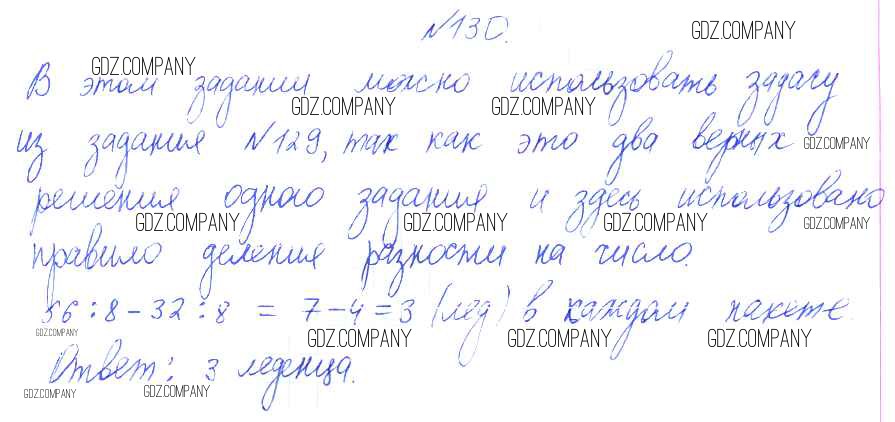 №130.
GDZ.COMPANY
В этом задании можно использовать задачу
GDZ.COMPANY
GDZ.COMPANY GDZ.COMPANY
из задания №129, так как это два верных
GDZ.COMPANY
решения одного задания и здесь использовано
GDZ.COMPANY GDZ.COMPANY GDZ.COMPANY GDZ.COMPANY
правило деления разности на число.
56:8-32:8 = 7-4=3 (лед) в каждом пакете.
GDZ.COMPANY GDZ.COMPANY GDZ.COMPANY GDZ.COMPANY
Ответ: 3 леденца.
GDZ.COMPANY GDZ.COMPANY